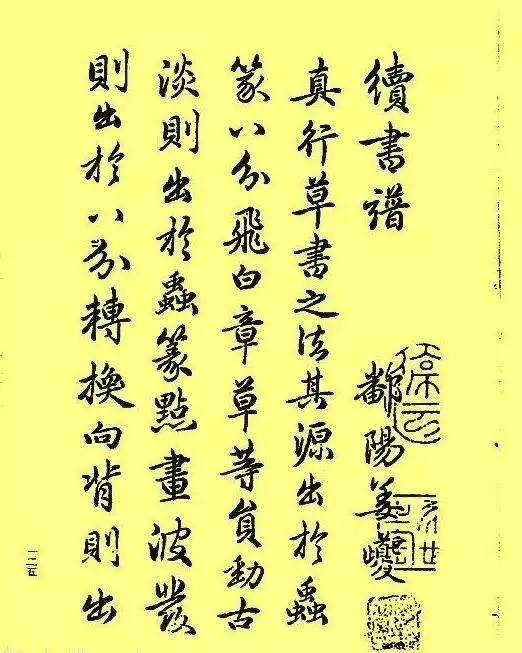 續書譜
鄱陽姜夔
真行草書之法其源出於蟲
篆八分飛白章草等員勁古
淡則出於蟲篆點畫波發
則出於八分轉換向背則出